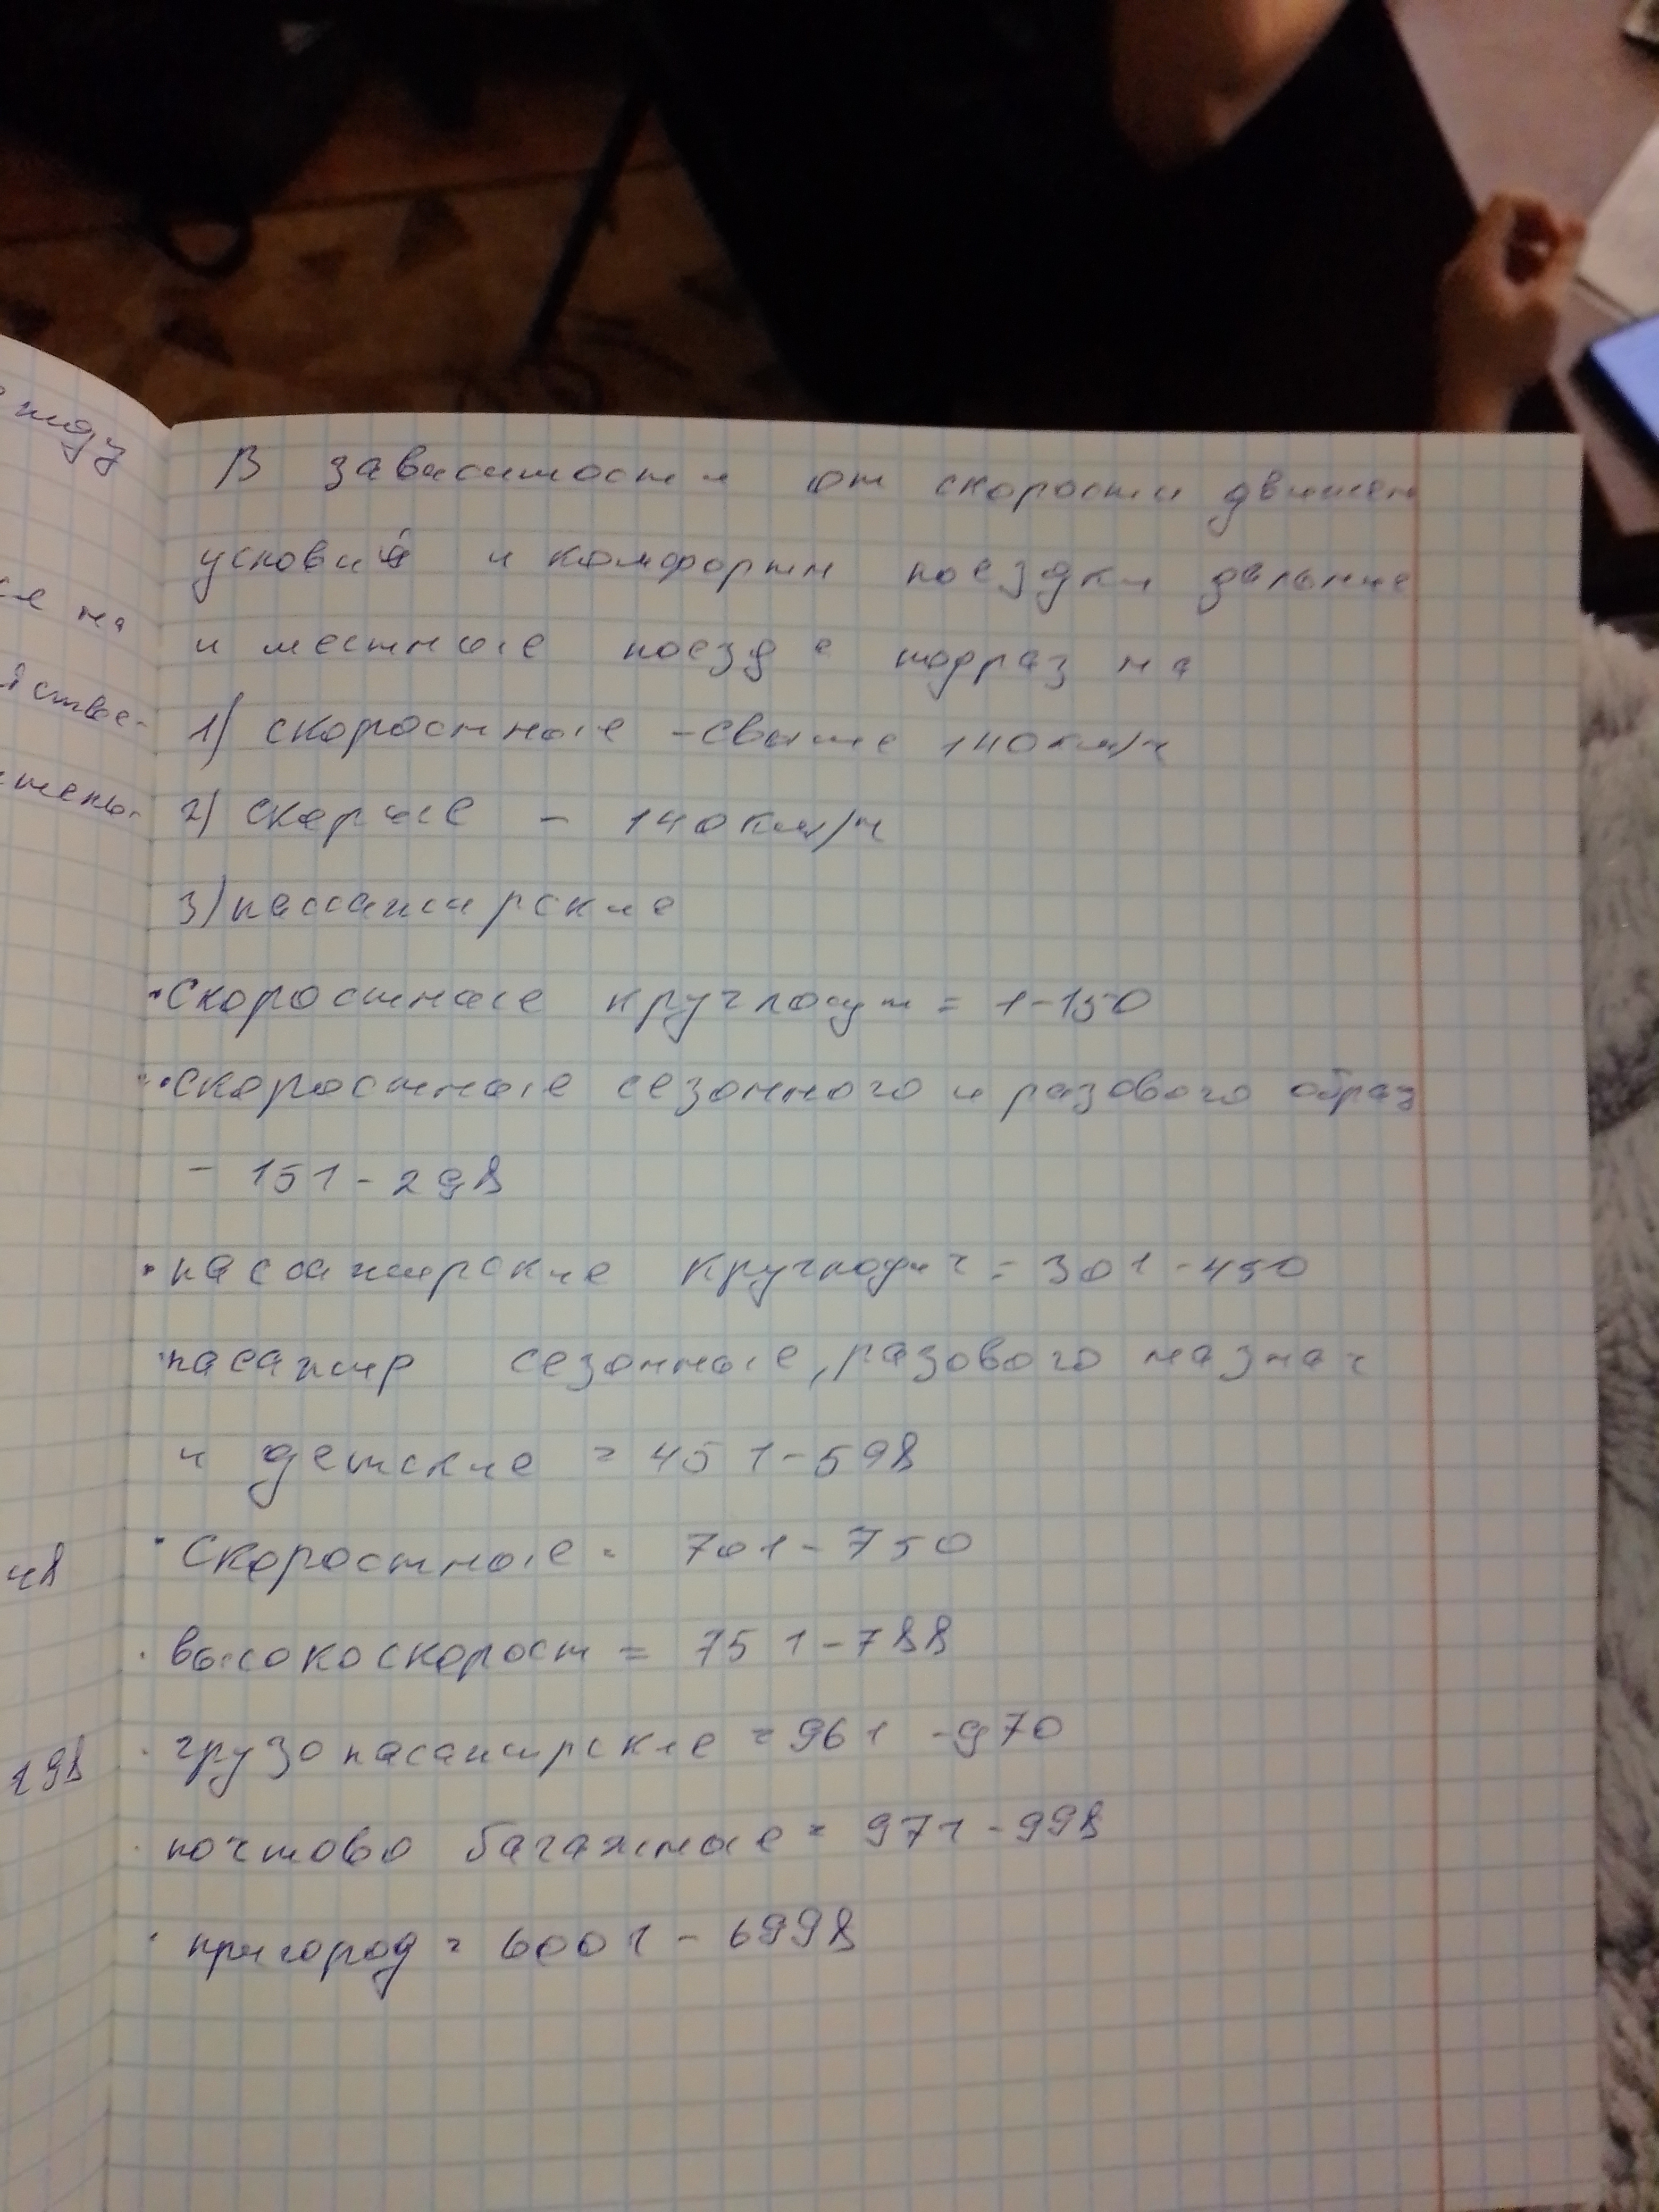 В зависимости от скорости движен
условий и комфорта поездки дальние
и местные поезда подраз на
1) скоростные - свыше 140км/ч
2) скорые - 140км/ч
3) пассажирские
• Скоростные круглосут = 1-150
• скоростные сезонного и разового образ
- 151 - 298
• пассажирские круглодич = 301 - 450
• пасажир сезонные, разового назнач
и детские = 451-598
• Скоростные = 701 - 750
• высокоскорост = 751-788
• грузопасажирские = 961 - 970
• почтово багажные = 971 - 998
• пригород = 6001 - 6998
жду
на
48
198